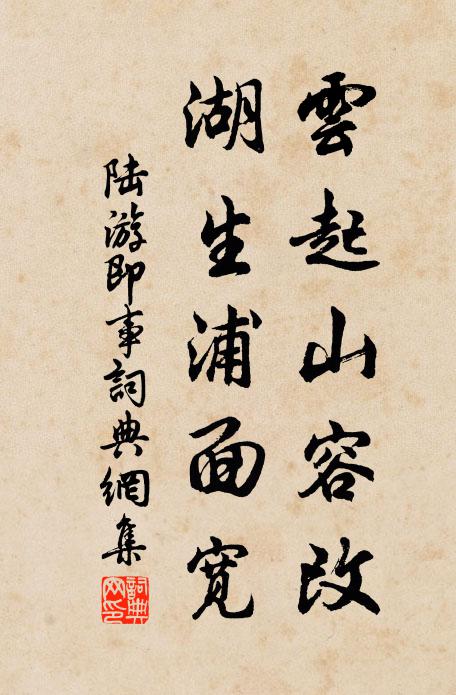 雲起山容改
湖生浦面寬
陸游即事詞典網集
詞典网印